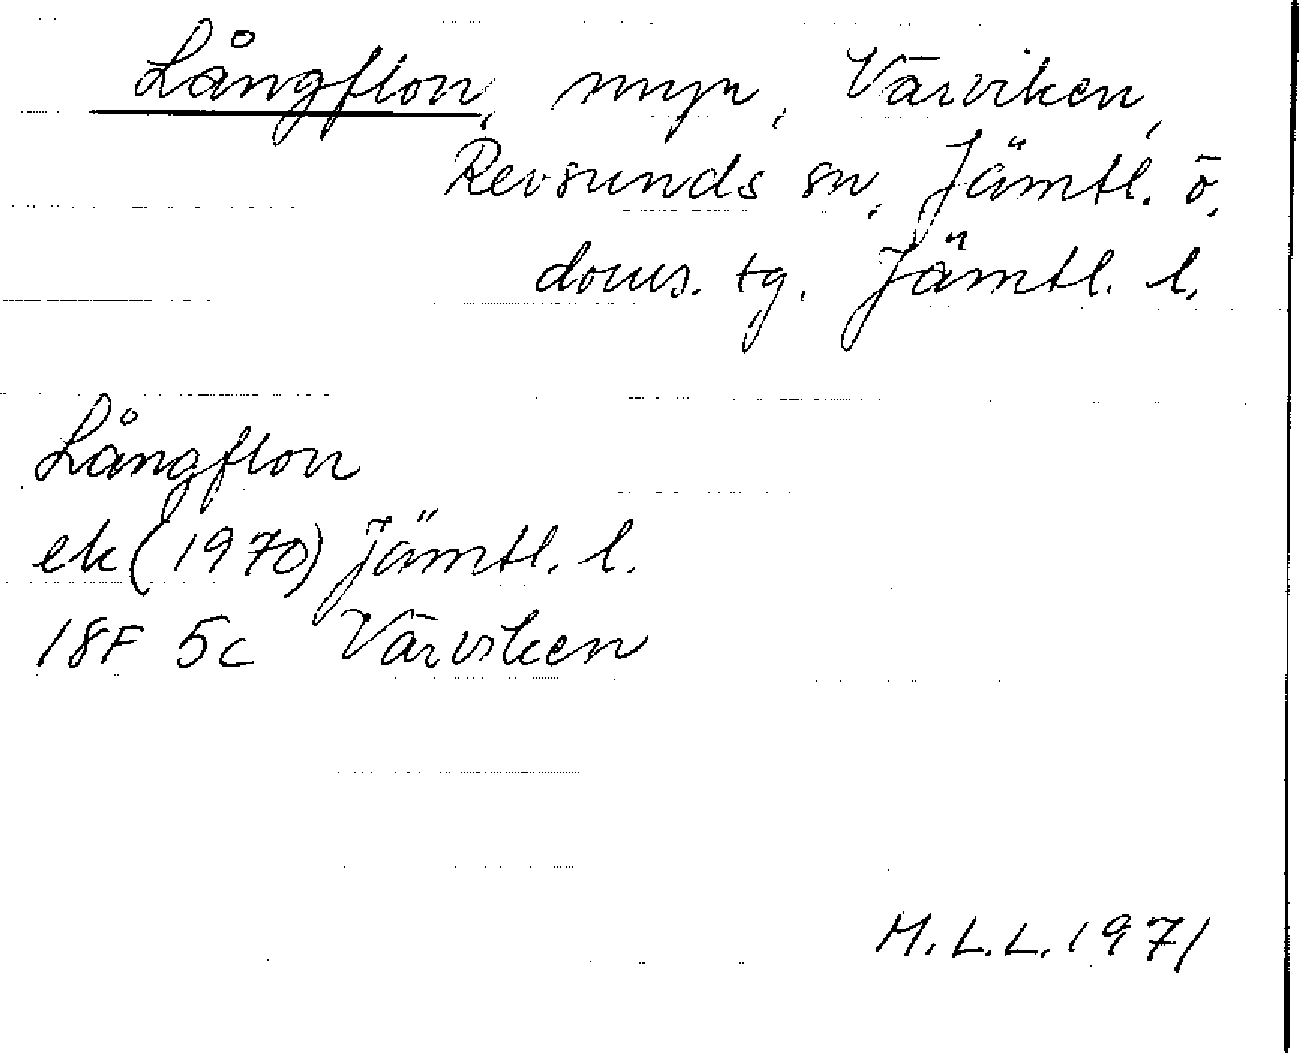 Långflon, myr, Värviken,
Revsunds sn, Jämtl. ö.
doms. tg. Jämtl. l.
Långflon
ek (1970) Jämtl. l.
18F 5c Värviken
M.L.L. 1971